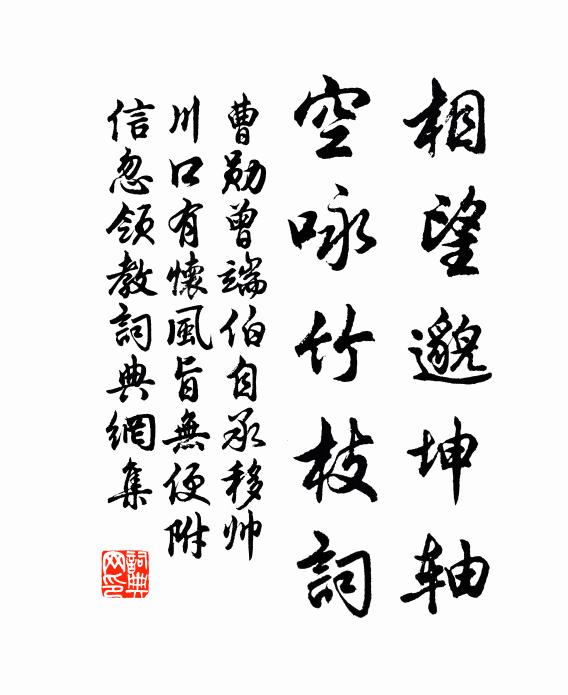 相望邈坤軸
空咏竹枝詞
曹勛曾端伯自承移帅
川口有懷風旨無便附
信忽领教詞典網集
詞典
网印